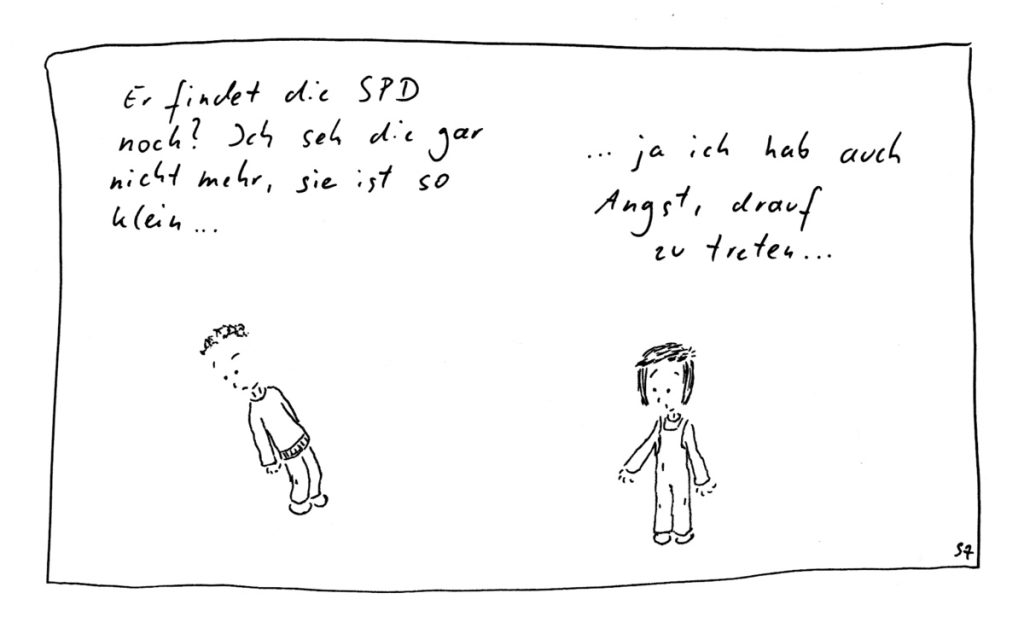 Er findet die SPD
noch? Ich seh die gar
nicht mehr, sie ist so
klein...
... ja ich hab auch
Angst, drauf
zu treten...